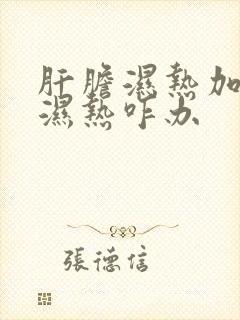 肝膽濕熱加
濕熱咋办
張德信